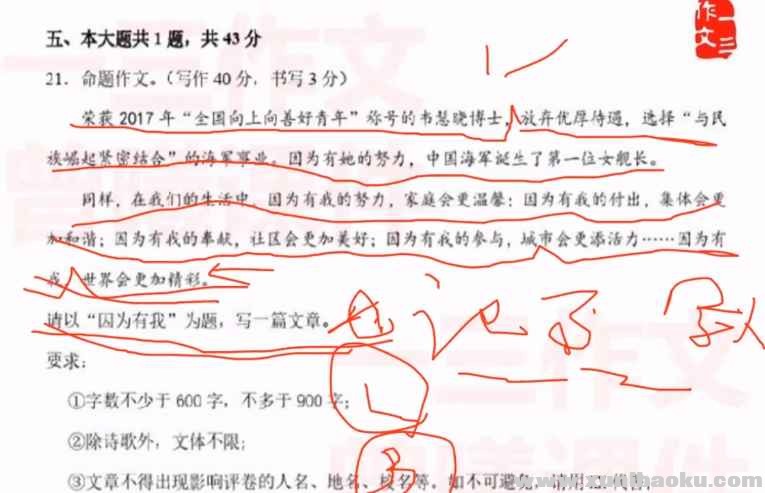 作文
一三
五、本大题共1题，共43分
21．命题作文。（写作40分，书写3分）
荣获2017年“全国向上向善好青年”称号的韦慧晓博士，放弃优厚待遇，选择“与民
族崛起紧密结合”的海军事业。因为有她的努力，中国海军诞生了第一位女舰长。
同样，在我们的生活中，因为有我的努力，家庭会更温馨；因为有我的付出，集体会更
加和谐；因为有我的奉献，社区会更加美好；因为有我的参与，城市会更添活力……因为有
我，世界会更加精彩。
请以“因为有我”为题，写一篇文章。
要求：
①字数不少于600字，不多于900字；
②除诗歌外，文体不限；
③文章不得出现影响评卷的人名、地名、校名等，如不可避免，请用
一三作文